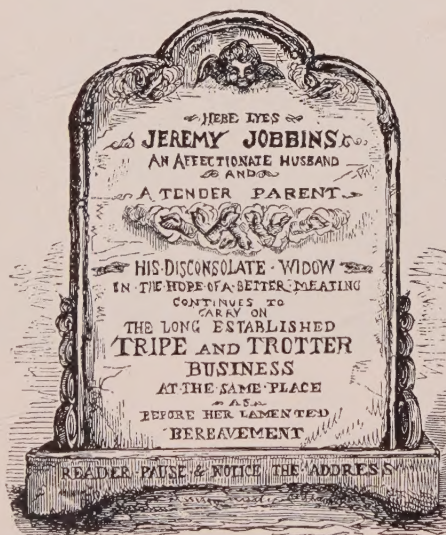 HERE LYES
JEREMY JOBBINS
AN AFFECTIONATE HUSBAND
AND
A TENDER PARENT
HIS·DISCONSOLATE·WIDOW
IN·THE·HOPE·OF·A·BETTER·MEATING
CONTINUES TO
CARRY ON
THE LONG ESTABLISHED
TRIPE AND TROTTER
BUSINESS
AT·THE·SAME·PLACE
AS
BEFORE HER LAMENTED
BEREAVEMENT
READER PAUSE & NOTICE THE ADDRESS